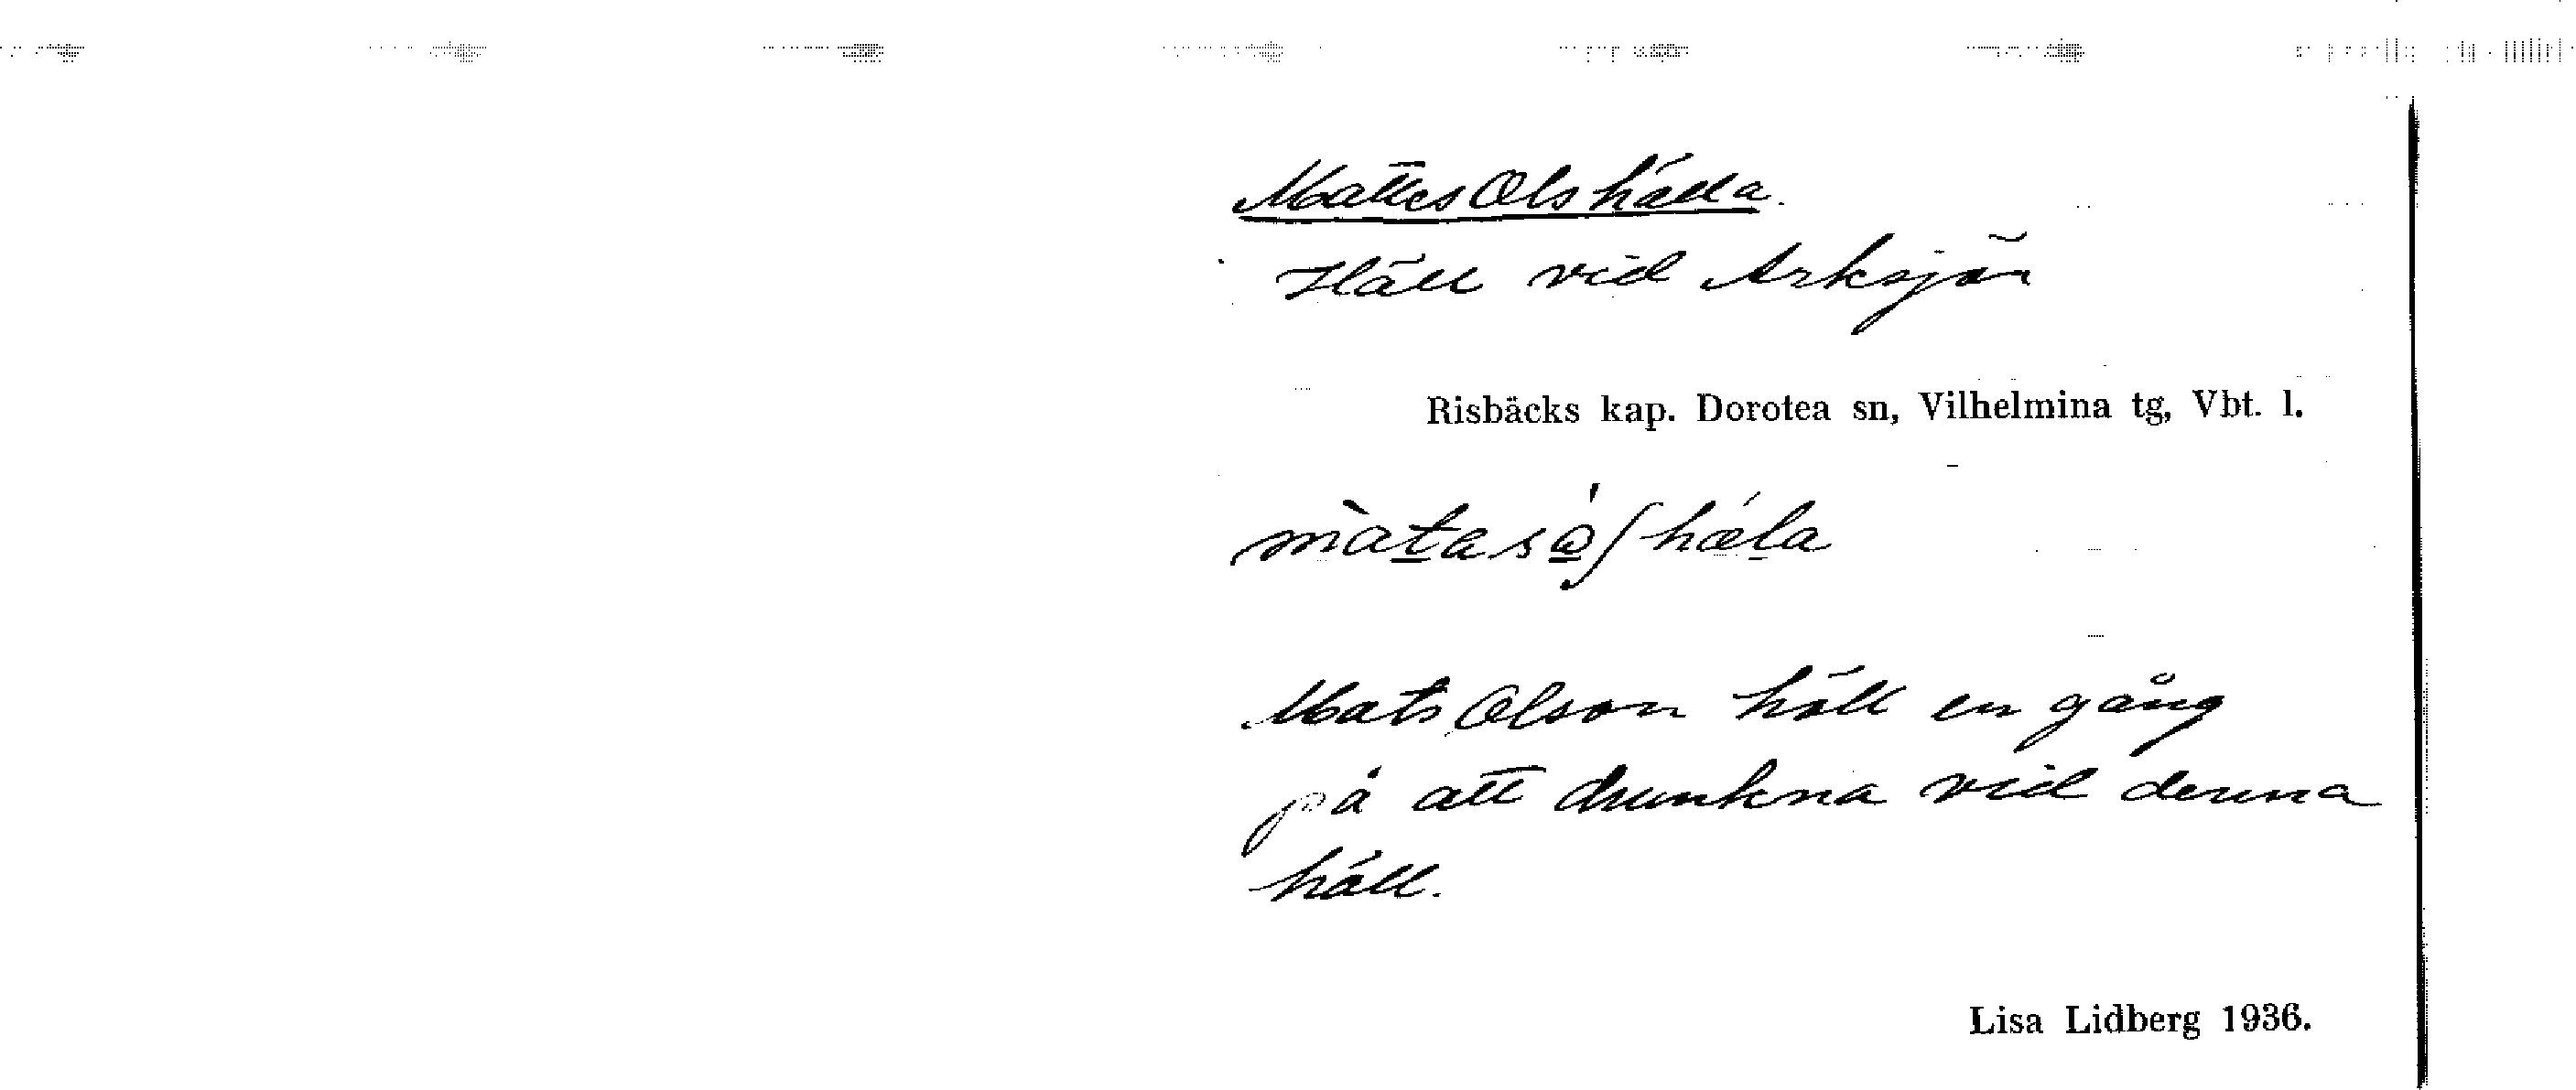 Mattes Olshälla.
Häll vid Arksjön
Risbäcks kap. Dorotea sn, Vilhelmina tg, Vbt. l.
Mats Olson höll en gång
på att drunkna vid denna
häll.
Lisa Lidberg 1936.